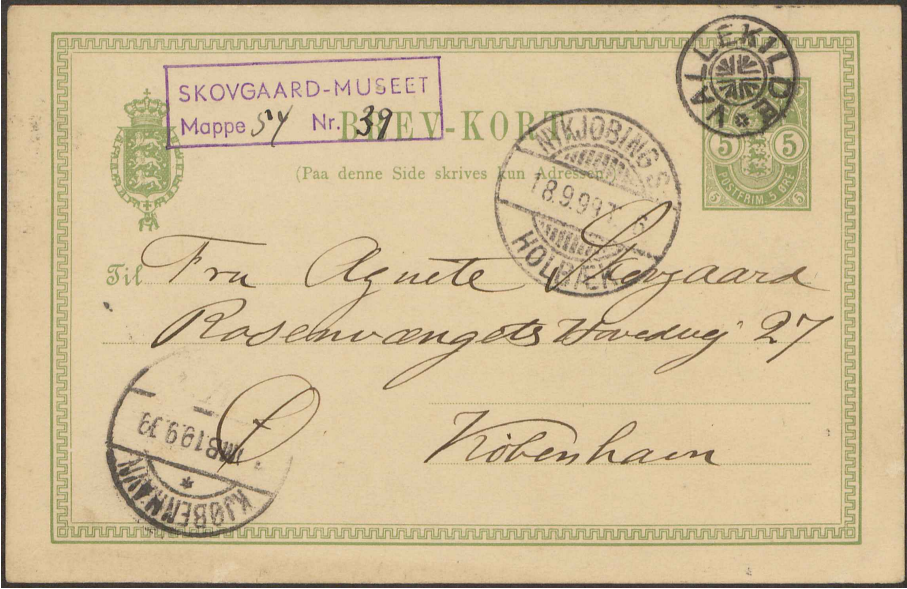 VALLEKILDE
SKOVGAARD-MUSEET
Mappe 54 Nr. 39
BREV-KORT
(Paa denne Side skrives kun Adressen)
5 5
POSTFRIM. 5 ØRE
5 5
NYKJØBING S
18.9.99
HOLBÆK
Til Fru Agnete Skovgaard
Rosenvængets Hovedvej 27
Ø
København
19.9.99
KJØBENHAVN